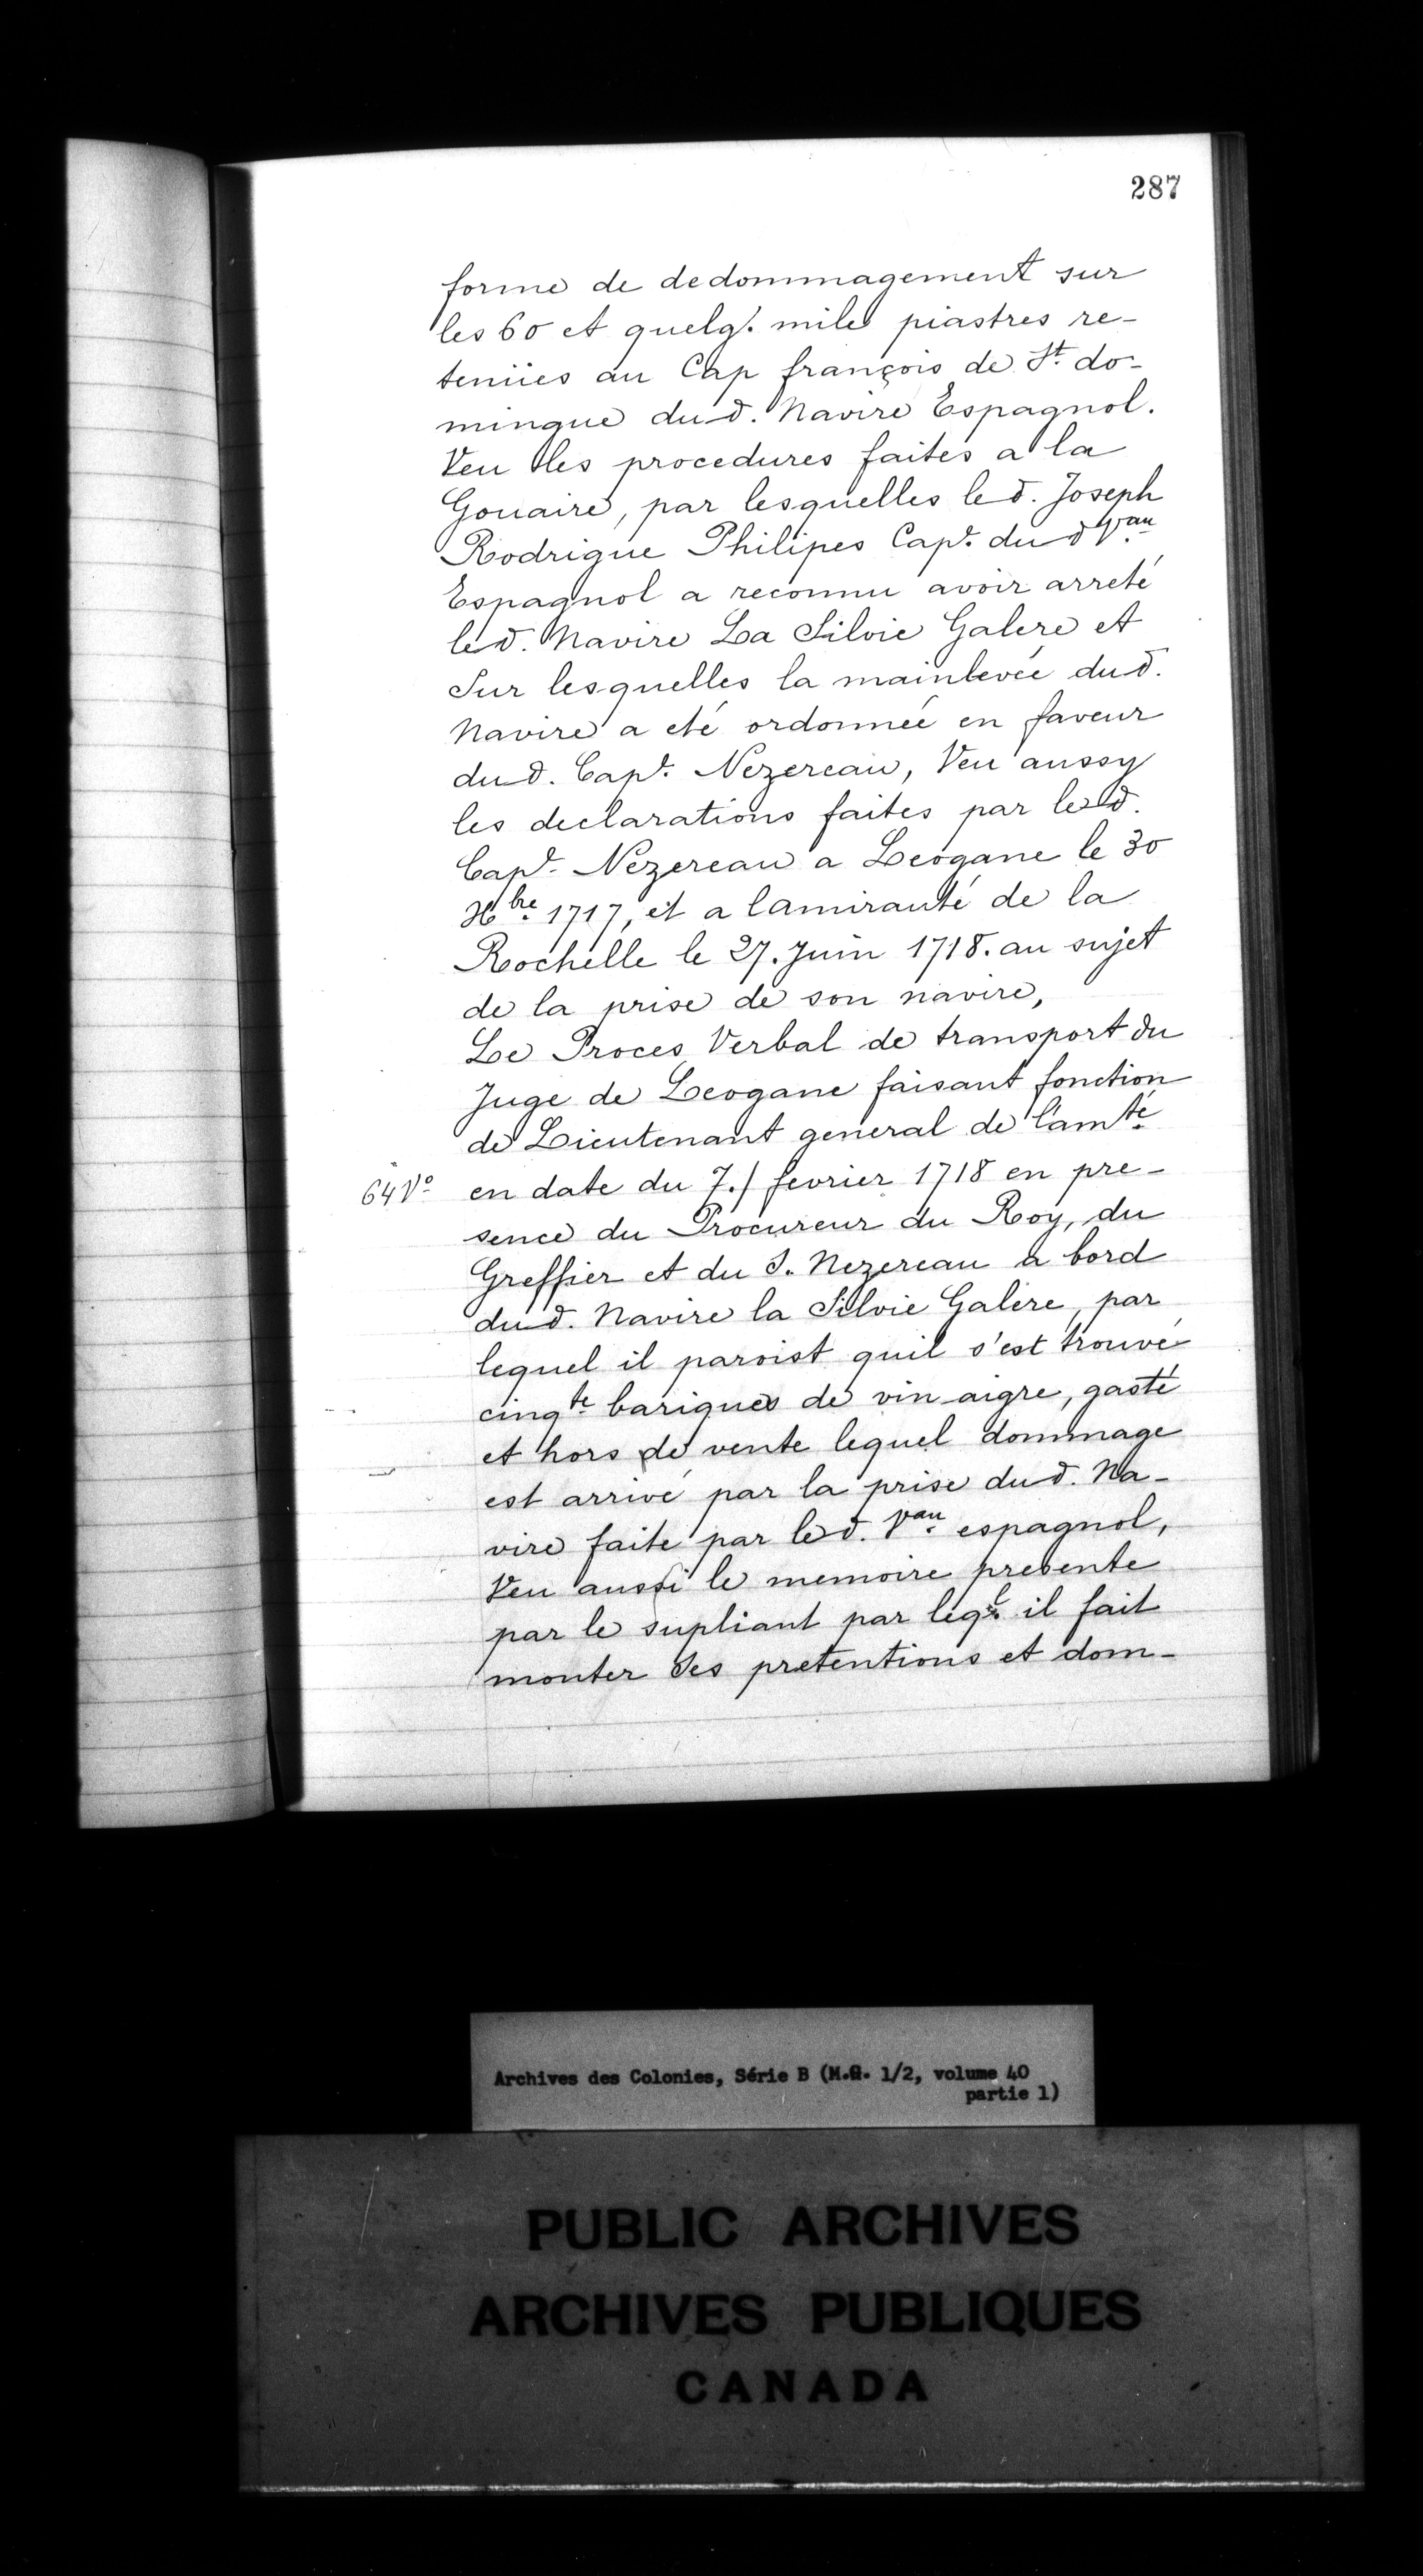 287
forme de dedommagement sur
les 60 et quelq. mile piastres re-
tenües au Cap françois de St. do-
mingue dud. Navire Espagnol.
Veu les procedures faites a la
Gouaire, par lesquelles led. Joseph
Rodrigue Philipes Capt. du d Vau
Espagnol a reconnu avoir arreté
led. Navire La Silvie Galere et
Sur lesquelles la mainlevée dud.
Navire a eté ordonnée en faveur
dud. Capt. Nezereau, Veu aussy
les declarations faites par led.
Capt. Nezereau a Leogane le 30
Xbre. 1717, et a lamirauté de la
Rochelle le 27. Juin 1718. au sujet
de la prise de son navire,
Le Proces Verbal de transport du
Juge de Leogane faisant fonction
de Lieutenant general de l'amté
64 Vo. en date du 7./ fevrier 1718 en pre-
sence du Procureur du Roy, du
Greffier et du S. Nezereau a bord
dud. Navire la Silvie Galere, par
lequel il paroist quil s'est trouvé
cinqte. bariques de vin aigre, gasté
et hors de vente lequel dommage
est arrivé par la prise dud. Na-
vire faite par led. Vau. espagnol,
Veu aussi le memoire presente
par le supliant par leql. il fait
monter Ses pretentions et dom-
Archives des Colonies, Série B (M.G. 1/2, volume 40
partie 1)
PUBLIC ARCHIVES
ARCHIVES PUBLIQUES
CANADA